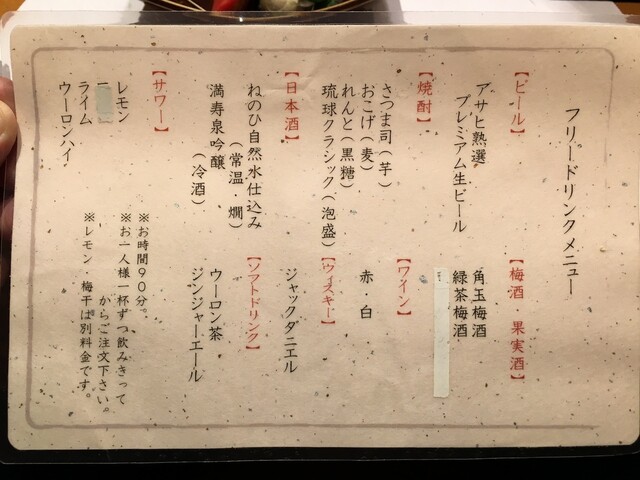 フリードリンクメニュー
【ビール】
アサヒ熟選
プレミアム生ビール
【焼酎】
さつま司(芋)
おこげ(麦)
れんと(黒糖)
琉球クラシック(泡盛)
【日本酒】
ねのひ自然水仕込み
(常温・燗)
満寿泉吟醸
(冷酒)
【サワー】
レモン
ライム
ウーロンハイ
【梅酒・果実酒】
角玉梅酒
緑茶梅酒
【ワイン】
赤・白
【ウィスキー】
ジャックダニエル
【ソフトドリンク】
ウーロン茶
ジンジャーエール
※お時間90分。
※お一人様一杯ずつ飲みきって
からご注文下さい。
※レモン・梅干は別料金です。